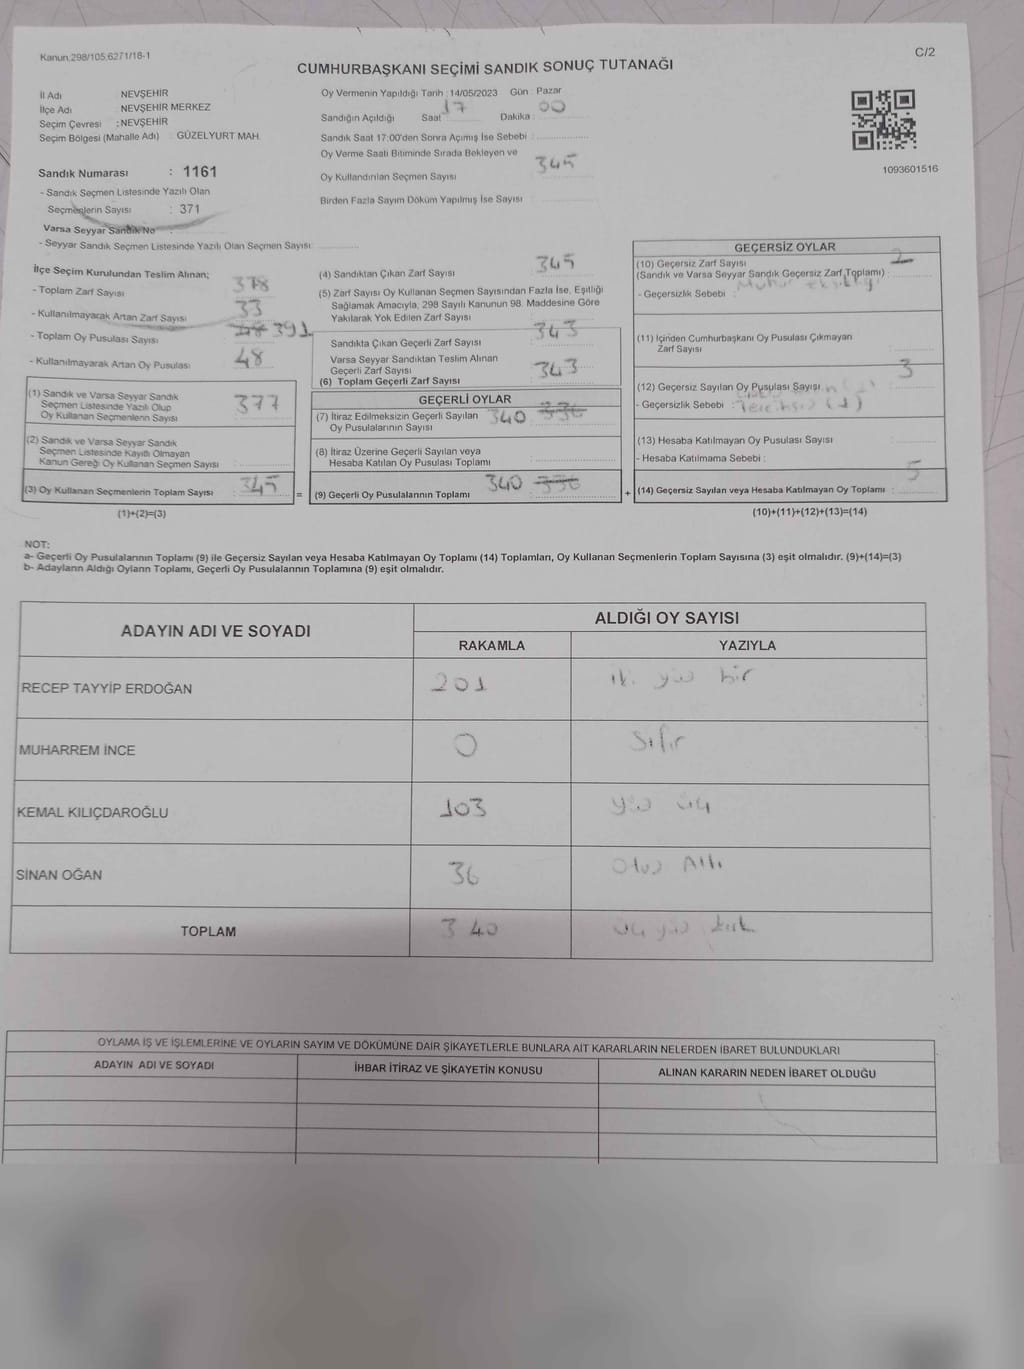 Kanun.298/105;6271/18-1
C/2
CUMHURBAŞKANI SEÇİMİ SANDIK SONUÇ TUTANAĞI
İl Adı NEVŞEHİR
İlçe Adı NEVŞEHİR MERKEZ
Seçim Çevresi :NEVŞEHİR
Seçim Bölgesi (Mahalle Adı) : GÜZELYURT MAH.
Sandık Numarası : 1161
- Sandık Seçmen Listesinde Yazılı Olan
Seçmenlerin Sayısı : 371
Varsa Seyyar Sandık No
- Seyyar Sandık Seçmen Listesinde Yazılı Olan Seçmen Sayısı:
Oy Vermenin Yapıldığı Tarih :14/05/2023 Gün : Pazar
Sandığın Açıldığı Saat 17 Dakika : 00
Sandık Saat 17:00'den Sonra Açımış İse Sebebi :
Oy Verme Saati Bitiminde Sırada Bekleyen ve
Oy Kullandırılan Seçmen Sayısı 345
Birden Fazla Sayım Döküm Yapılmış İse Sayısı
1093601516
İlçe Seçim Kurulundan Teslim Alınan;
- Toplam Zarf Sayısı 378
- Kullanılmayarak Artan Zarf Sayısı 33
- Toplam Oy Pusulası Sayısı 391
- Kullanılmayarak Artan Oy Pusulası 48
(1) Sandık ve Varsa Seyyar Sandık
Seçmen Listesinde Yazılı Olup
Oy Kullanan Seçmenlerin Sayısı 377
(2) Sandık ve Varsa Seyyar Sandık
Seçmen Listesinde Kayıtlı Olmayan
Kanun Gereği Oy Kullanan Seçmen Sayısı
(3) Oy Kullanan Seçmenlerin Toplam Sayısı : 345 =
(1)+(2)=(3)
(4) Sandıktan Çıkan Zarf Sayısı 345
(5) Zarf Sayısı Oy Kullanan Seçmen Sayısından Fazla İse, Eşitliği
Sağlamak Amacıyla, 298 Sayılı Kanunun 98. Maddesine Göre
Yakılarak Yok Edilen Zarf Sayısı
Sandıkta Çıkan Geçerli Zarf Sayısı 343
Varsa Seyyar Sandıktan Teslim Alınan
Geçerli Zarf Sayısı
(6) Toplam Geçerli Zarf Sayısı 343
GEÇERLİ OYLAR
(7) İtiraz Edilmeksizin Geçerli Sayılan 340 336
Oy Pusulalarının Sayısı
(8) İtiraz Üzerine Geçerli Sayılan veya
Hesaba Katılan Oy Pusulası Toplamı
(9) Geçerli Oy Pusulalarının Toplamı 340 336 +
GEÇERSİZ OYLAR
(10) Geçersiz Zarf Sayısı 2
(Sandık ve Varsa Seyyar Sandık Geçersiz Zarf Toplamı) :
- Geçersizlik Sebebi : Mühür Eksikliği
(11) İçinden Cumhurbaşkanı Oy Pusulası Çıkmayan
Zarf Sayısı
(12) Geçersiz Sayılan Oy Pusulası Sayısı 3
- Geçersizlik Sebebi : Tercihsiz (1)
(13) Hesaba Katılmayan Oy Pusulası Sayısı
- Hesaba Katılmama Sebebi :
(14) Geçersiz Sayılan veya Hesaba Katılmayan Oy Toplamı : 5
(10)+(11)+(12)+(13)=(14)
NOT:
a- Geçerli Oy Pusulalarının Toplamı (9) ile Geçersiz Sayılan veya Hesaba Katılmayan Oy Toplamı (14) Toplamları, Oy Kullanan Seçmenlerin Toplam Sayısına (3) eşit olmalıdır. (9)+(14)=(3)
b- Adayların Aldığı Oyların Toplamı, Geçerli Oy Pusulalarının Toplamına (9) eşit olmalıdır.
ADAYIN ADI VE SOYADI
ALDIĞI OY SAYISI
RAKAMLA YAZIYLA
RECEP TAYYİP ERDOĞAN 201 iki yüz bir
MUHARREM İNCE 0 Sıfır
KEMAL KILIÇDAROĞLU 103 yüz üç
SİNAN OĞAN 36 Otuz Altı
TOPLAM 340 üç yüz kırk
OYLAMA İŞ VE İŞLEMLERİNE VE OYLARIN SAYIM VE DÖKÜMÜNE DAİR ŞİKAYETLERLE BUNLARA AİT KARARLARIN NELERDEN İBARET BULUNDUKLARI
ADAYIN ADI VE SOYADI İHBAR İTİRAZ VE ŞİKAYETİN KONUSU ALINAN KARARIN NEDEN İBARET OLDUĞU